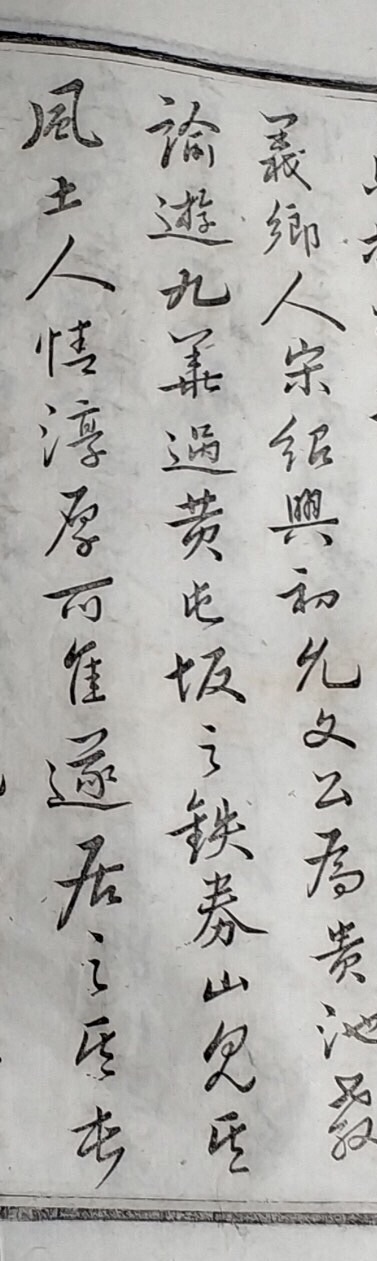 義鄉人宋紹興初允文公為貴池教
諭遊九華過黄屯坂之鉄券山見其
風土人情淳厚可隹遂居之其